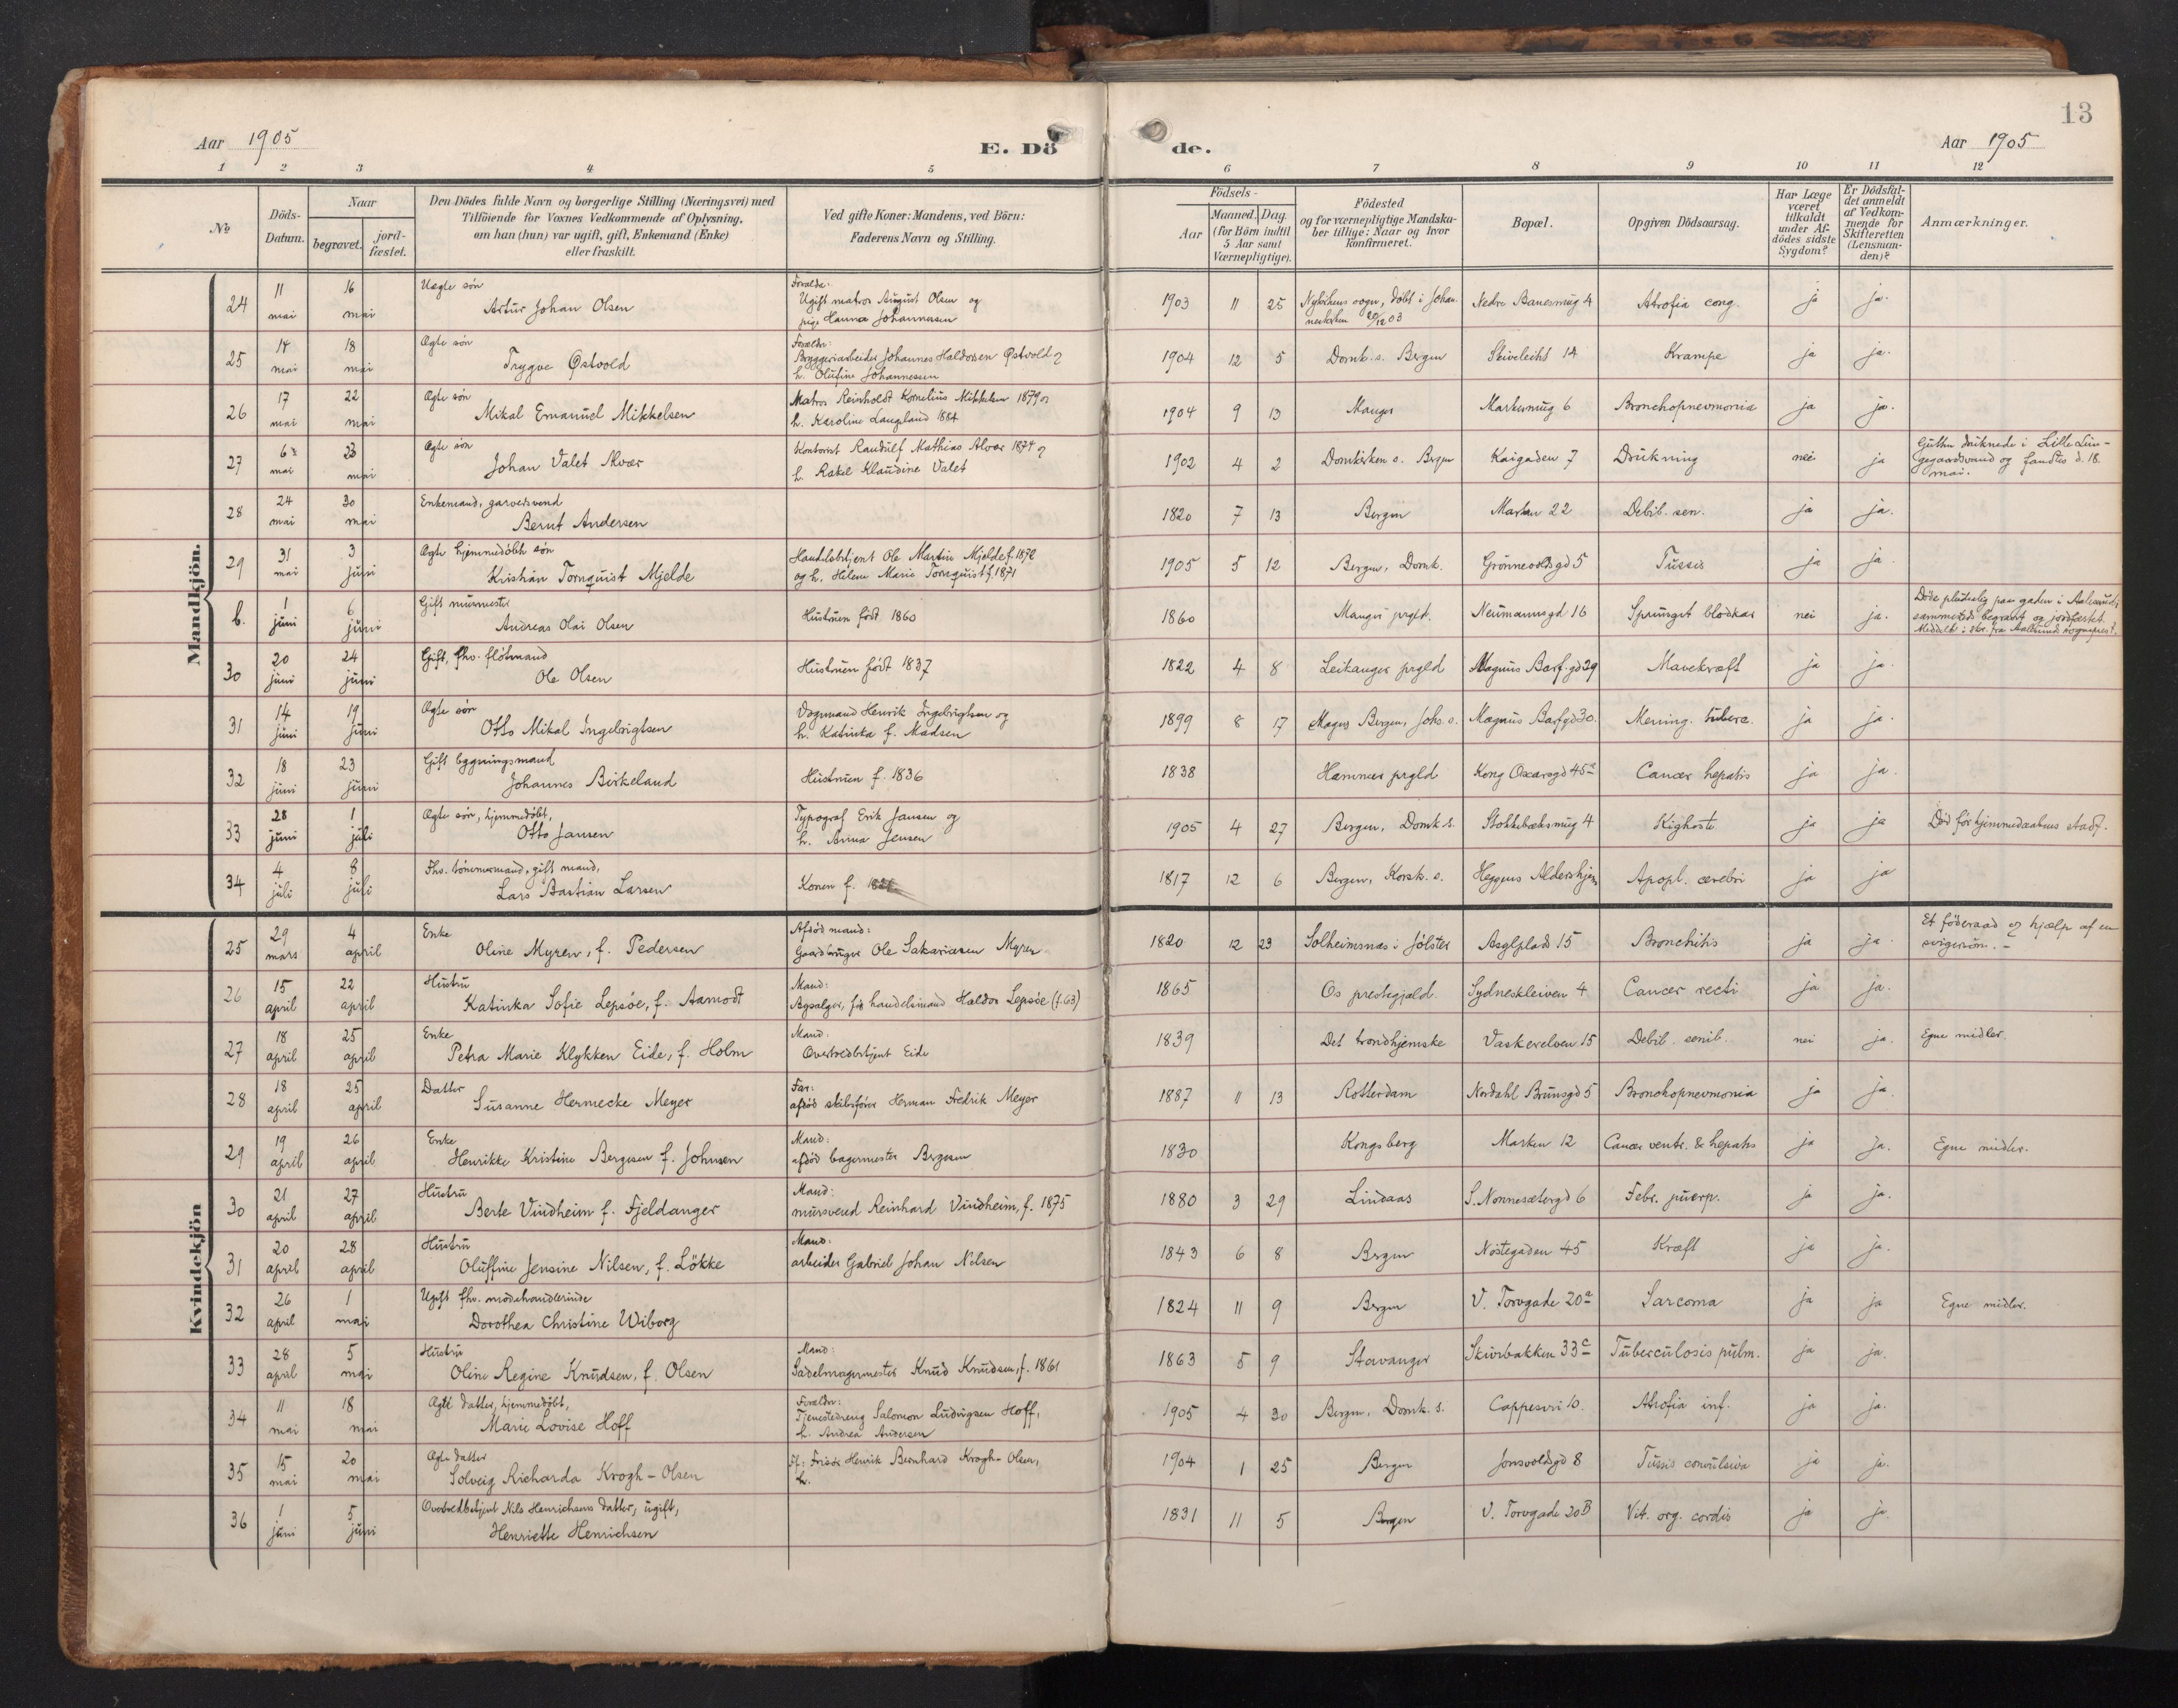 13
Aar 1905
E. Dö de.
Aar 1905
1 2 3 4 5 6 7 8 9 10 11 12
No
Döds-Datum.
Naar begravet. jordfæstet.
Den Dödes fulde Navn og borgerlige Stilling (Næringsvei) med
Tilföiende for Voxnes Vedkommende af Oplysning,
om han (hun) var ugift, gift, Enkemand (Enke)
eller fraskilt.
Ved gifte Koner: Mandens, ved Börn:
Faderens Navn og Stilling.
Födsels-
Aar
Maaned. Dag.
(for Börn indtil
5 Aar samt
Værnepligtige).
Födested
og for værnepligtige Mandskaber tillige: Naar og hvor
konfirmeret.
Bopæl.
Opgiven Dödsaarsag.
Har Læge
været
tilkaldt
under Afdödes sidste
Sygdom?
Er Dödsfaldet anmeldt
af Vedkommende for
Skifteretten
(Lensmanden)?
Anmærkninger.
Mandkjön.
24 11 mai 16 mai Uægte søn Artur Johan Olsen Forældre: Ugift matros August Olsen og pige Hanna Johannesen 1903 11 25 Nykirkens sogn, døbt i Johanneskirken 20/12 03 Nedre Banesmug 4 Atrofia cong. ja ja.
25 14 mai 18 mai Ægte søn Trygve Østvold Forældre: Bryggeriarbeider Johannes Haldorsen Østvold og h. Olufine Johannessen 1904 12 5 Domk. s. Bergen 14 Krampe ja ja.
26 17 mai 22 mai Ægte søn Mikal Emanuel Mikkelsen Matros Reinholdt Kornelius Mikkelsen 1879 og h. Karoline Langeland 1884 1904 9 13 Manger Markesmug 6 Bronchopnevmonia ja ja.
27 6 mai 23 mai Ægte søn Johan Valet Alvær Kontorist Randulf Mathias Alvær 1874 og h. Rakel Klaudine Valet 1902 4 2 Domkirken s. Bergen Kaigaden 7 Drukning nei ja Gutten druknede i Lille Lungegaardsvand og fandtes d. 18. mai.
28 24 mai 30 mai Enkemand, garversvend Bernt Andersen 1820 7 13 Bergen Marken 22 Debil. sen. ja ja.
29 31 mai 3 juni Ægte hjemmedøbt søn Kristian Tornquist Mjelde Handelsbetjent Ole Martin Mjelde f. 1872 og h. Helene Marie Tornquist f. 1871 1905 5 12 Bergen, Domk. Grønnevoldsgd 5 Tussis ja ja.
b. 1 juni 6 juni Gift murmester Andreas Olai Olsen Hustruen født 1860 1860 Manger prgld. Neumannsgd 16 Sprunget blodkar nei ja. Døde pludselig paa gaden i Aalesund; sammesteds begravet og jordfæstet. Meddelt i skr. fra Aalesunds sogneprest.
30 20 juni 24 juni Gift, fhv. fløtmand Ole Olsen Hustruen født 1837 1822 4 8 Leikanger prgld Magnus Barf.gd 29 Mavekræft ja ja.
31 14 juni 19 juni Ægte søn Otto Mikal Ingebrigtsen Vognmand Henrik Ingebrigtsen og h. Katinka f. Madsen 1899 8 17 Bergen, Johs. s. Magnus Barfgd 30. Mening. tuberc. ja ja.
32 18 juni 23 juni Gift bygningsmand Johannes Birkeland Hustruen f. 1836 1838 Hammer prgld Kong Oscarsgd 45a Cancer hepatis ja ja.
33 28 juni 1 juli Ægte søn, hjemmedøbt, Otto Jansen Typograf Erik Jansen og h. Anna Jensen 1905 4 27 Bergen, Domk. s. Stokkebæksmug 4 Kighoste ja ja Død før hjemmedaabens stadf.
34 4 juli 8 juli Fhv. tømmermand, gift mand, Lars Bastian Larsen Konen f. 1817 12 6 Bergen, Korsk. s. Heggens Aldershjem Apopl. cerebri ja ja
Kvindekjön
25 29 mars 4 april Enke Oline Myren, f. Pedersen Afdød mand: Gaardbruger Ole Sakariasen Myren 1820 12 23 Solheimsnas i Jølster Asylplads 15 Bronchitis ja ja. Et føderaad og hjælp af en svigersøn. –
26 15 april 22 april Hustru Katinka Sofie Lepsøe, f. Aamodt Mand: Agsalger, før handelsmand Haldor Lepsøe (f. 63) 1865 Os prestegjæld. Sydneskleiven 4 Cancer recti ja ja.
27 18 april 25 april Enke Petra Marie Klykken Eide, f. Holm Mand: Overtoldbetjent Eide 1839 Det trondhjemske Vaskerelven 15 Debil. senil. nei ja. Egne midler.
28 18 april 25 april Datter Susanne Hermecke Meyer Far: afdød skibsfører Herman Fredrik Meyer 1887 11 13 Rotterdam Nordahl Brunsgd 5 Bronchopnevmonia ja ja.
29 19 april 26 april Enke Henrikke Kristine Bergesen f. Johnsen Mand: afdød bagermester Bergesen 1830 Kongsberg Marken 12 Cancer ventr. & hepatis ja ja. Egne midler.
30 21 april 27 april Hustru Berte Vindheim f. Fjeldanger Mand: mursvend Reinhard Vindheim, f. 1875 1880 3 29 Lindaas S. Nonnesætergd 6 Febr. puerp. ja ja.
31 20 april 28 april Hustru Oluffine Jensine Nilsen, f. Løkke Mand: arbeider Gabriel Johan Nilsen 1843 6 8 Bergen Nøstegaden 45 Kræft ja ja.
32 26 april 1 mai Ugift fhv. modehandlerinde Dorothea Christine Wiborg 1824 11 9 Bergen V. Torvgade 20a Sarcoma ja ja Egne midler.
33 28 april 5 mai Hustru Oline Regine Knudsen, f. Olsen Mand: Sadelmagermester Knud Knudsen, f. 1861 1863 5 9 Stavanger Skivebakken 33c Tuberculosis pulm. ja ja.
34 11 mai 18 mai Ægte datter, hjemmedøbt, Marie Lovise Hoff Forældre: Tjenestedreng Salomon Ludvigsen Hoff, h. Andrea Andersen 1905 4 30 Bergen, Domk. s. Cappesvei 10. Atrofia inf. ja ja.
35 15 mai 20 mai Ægte datter Solveig Richarda Krogh-Olsen Ff: Frisør Henrik Bernhard Krogh-Olsen, h. 1904 1 25 Bergen Jonsvoldsgd 8 Tussis convulsiva ja ja.
36 1 juni 5 juni Overtoldbetjent Nils Henrichsens datter, ugift, Henriette Henrichsen 1831 11 5 Bergen V. Torvgade 20B Vit. org. cordis ja ja.